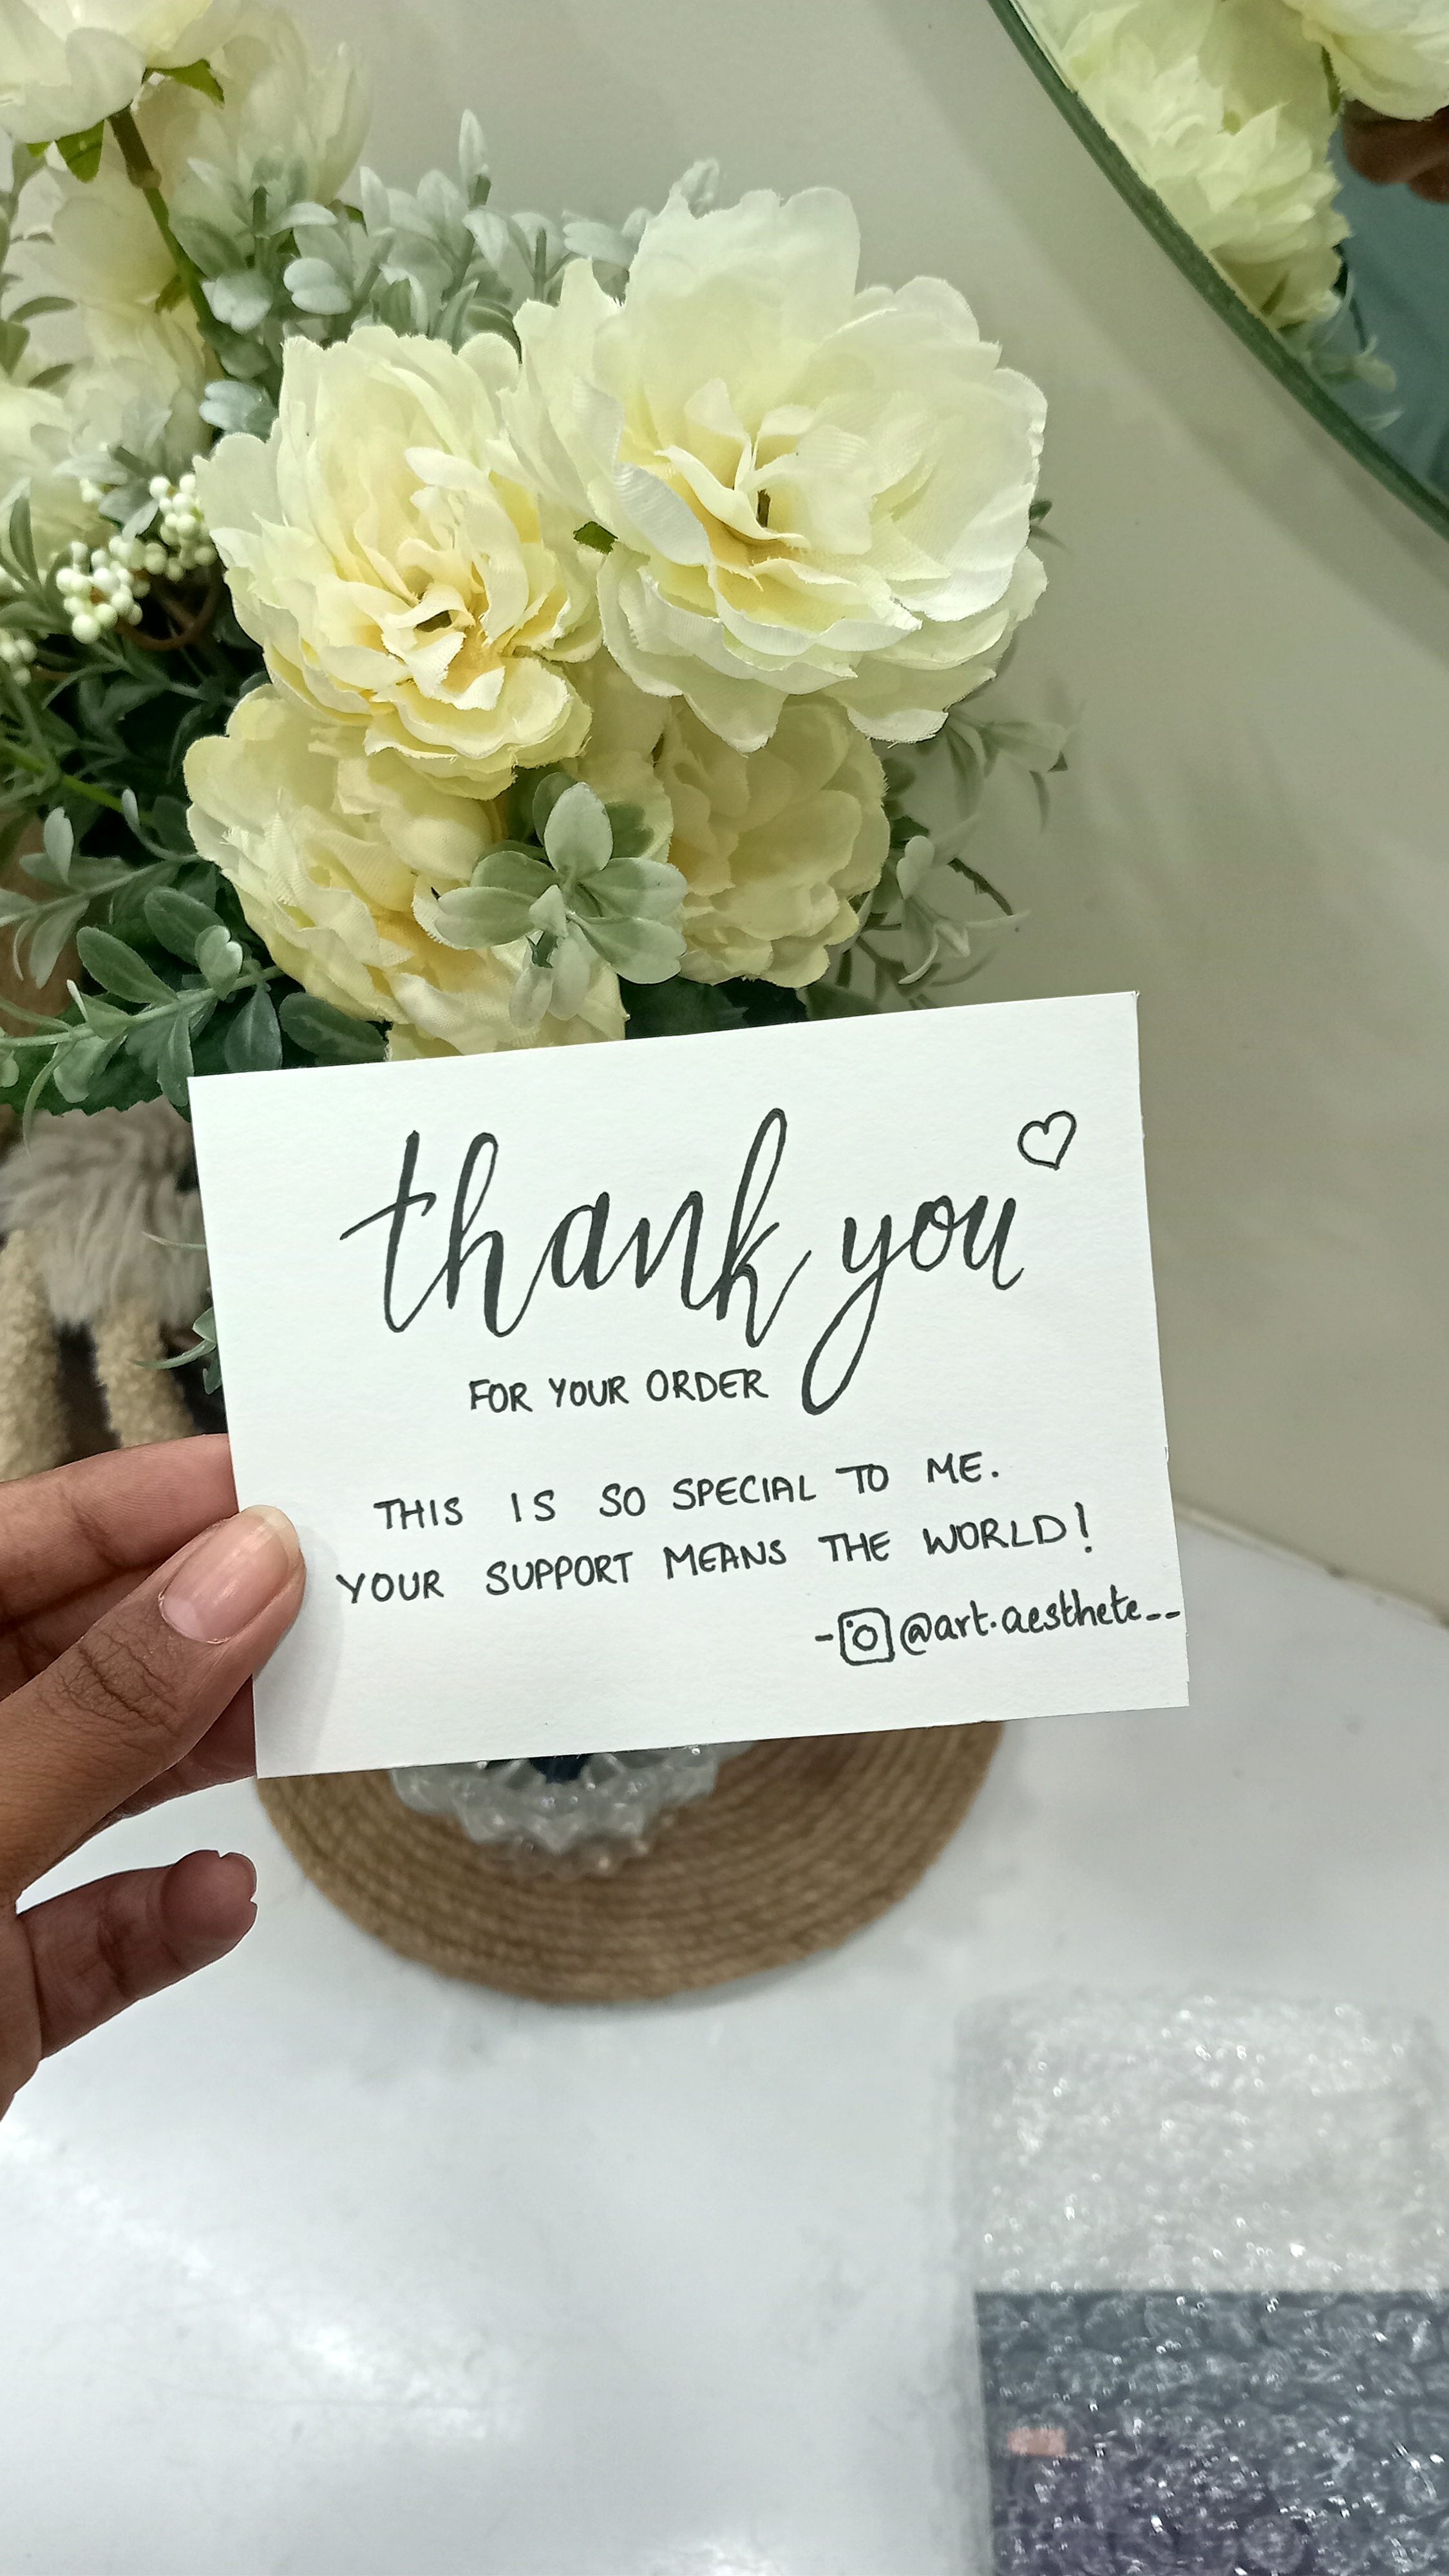 thank you
FOR YOUR ORDER
THIS IS SO SPECIAL TO ME.
YOUR SUPPORT MEANS THE WORLD!
- @art.aesthete__